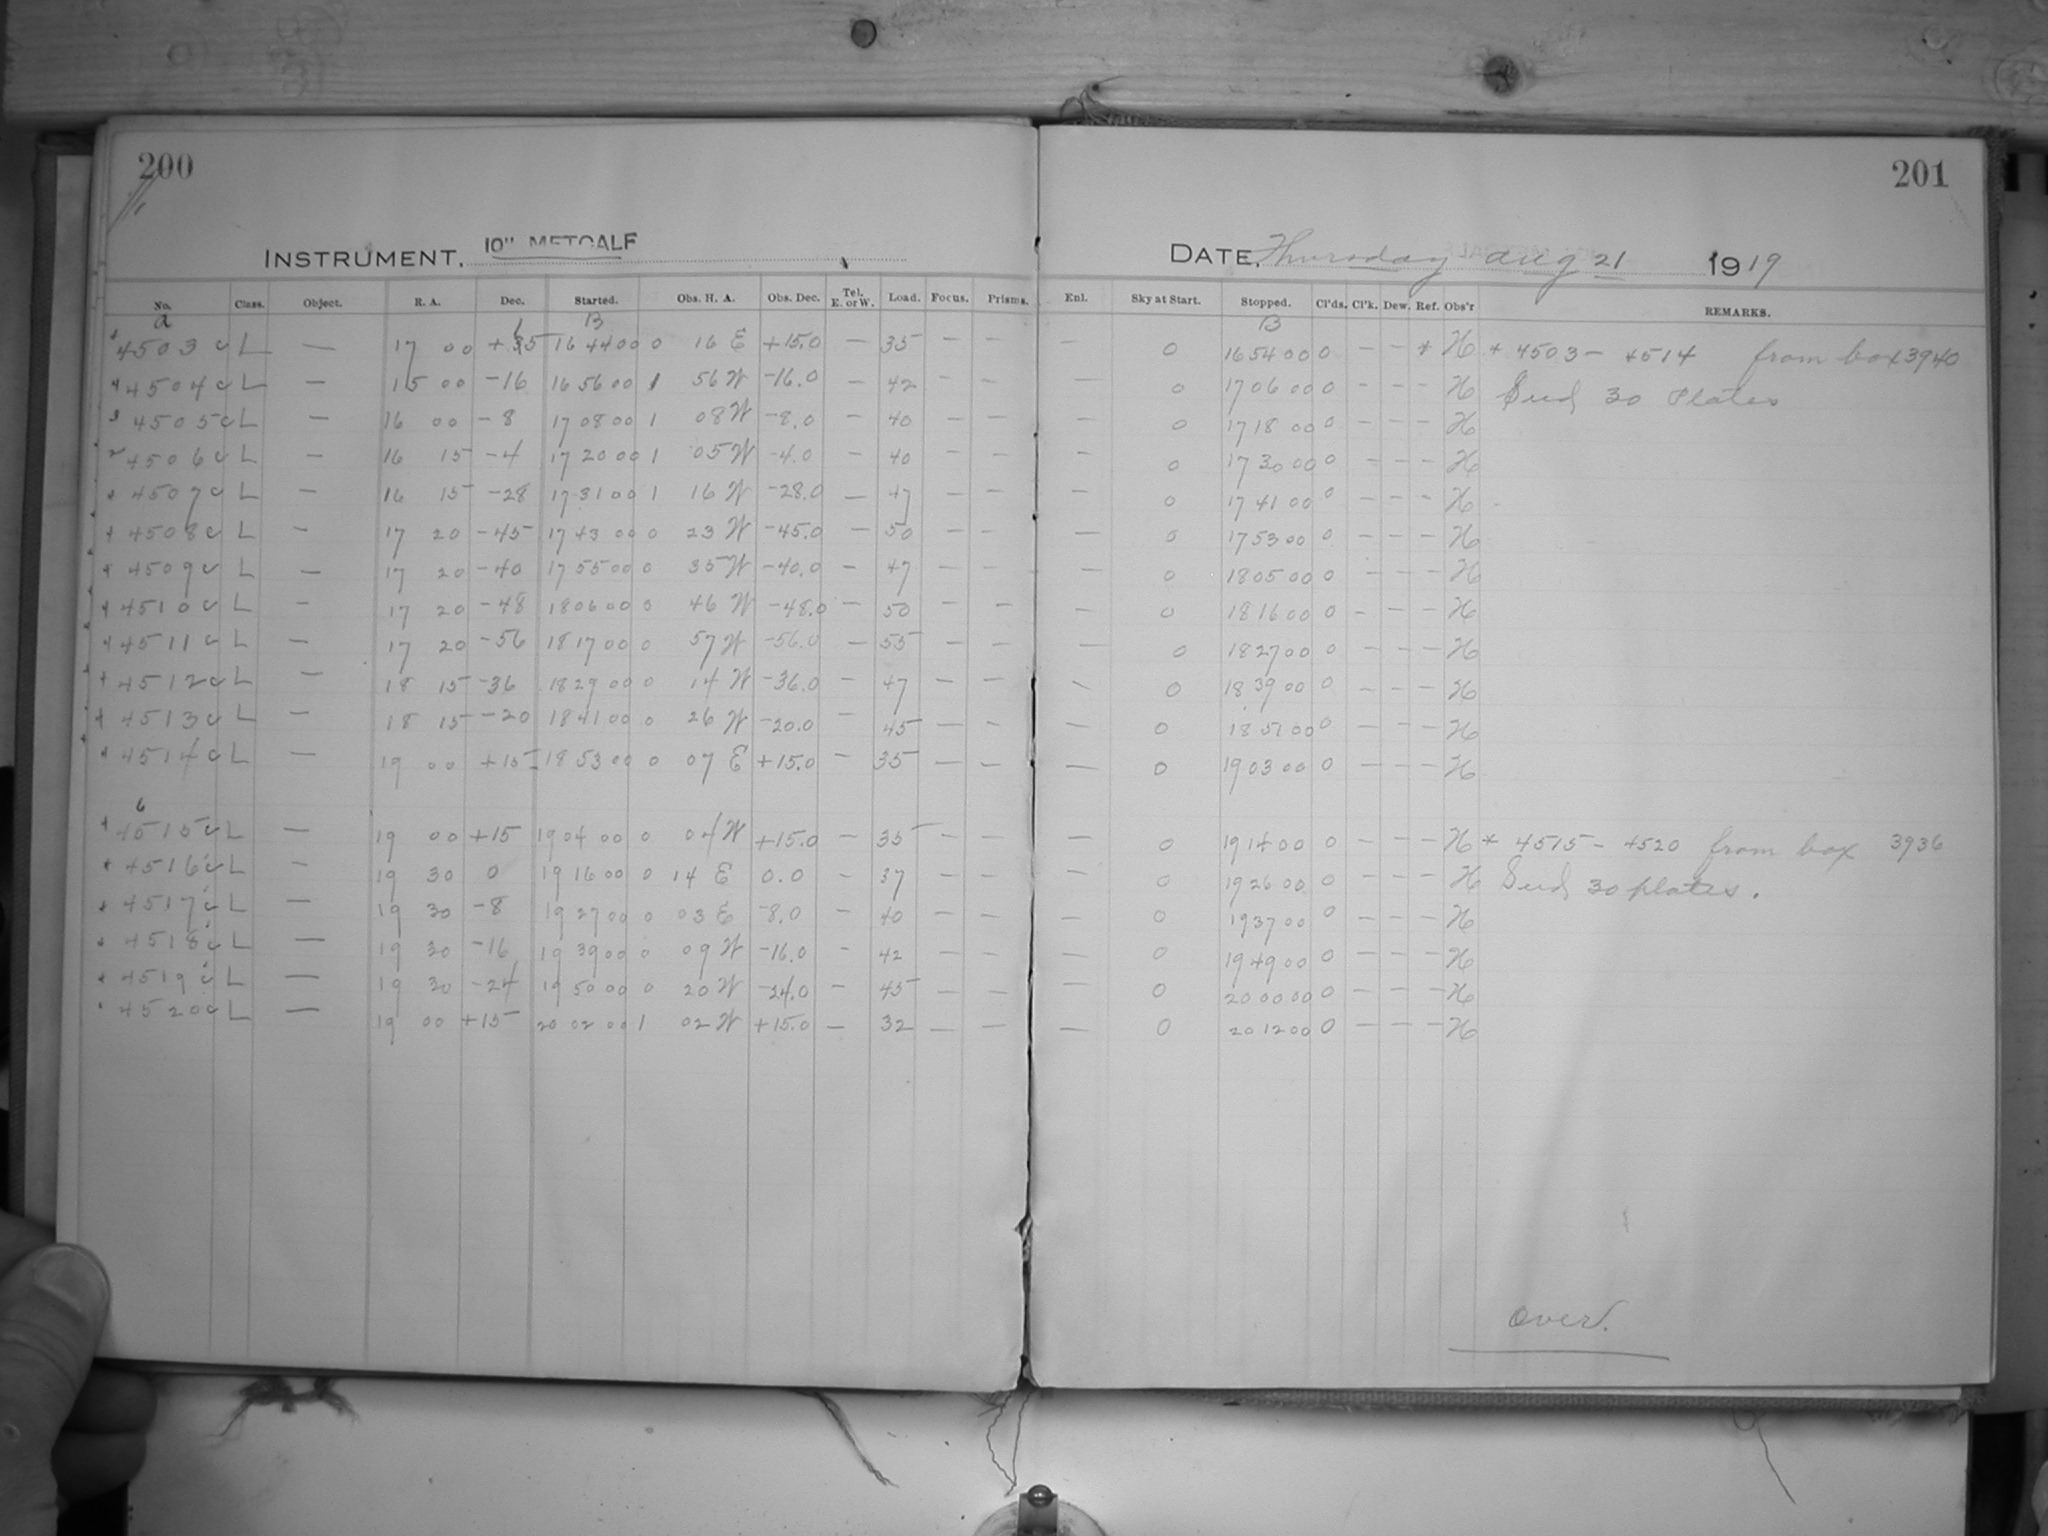 200
201
INSTRUMENT. 10" METCALF
DATE. Thursday Aug 21 1919
No. Class. Object. R. A. Dec. Started. Obs. H. A. Obs. Dec. Tel. E. or W. Load. Focus. Prisms. Enl. Sky at Start. Stopped. Cl'ds. Cl'k. Dew. Ref. Obs'r REMARKS.
a B B
4503 c L — 17 00 +15 16 44 00 0 16 E +15.0 — 35 — — — 0 16 54 00 0 — — * H * 4503 - 4514 from box 3940
4504 c L — 15 00 -16 16 56 00 1 56 W -16.0 — 42 — — — 0 17 06 00 0 — — — H Seed 30 Plates
4505 c L — 16 00 -8 17 08 00 1 08 W -8.0 — 40 — — — 0 17 18 00 0 — — — H
4506 c L — 16 15 -4 17 20 00 1 05 W -4.0 — 40 — — — 0 17 30 00 0 — — — H
4507 c L — 16 15 -28 17 31 00 1 16 W -28.0 — 47 — — — 0 17 41 00 0 — — — H
4508 c L — 17 20 -45 17 43 00 0 23 W -45.0 — 50 — — — 0 17 53 00 0 — — — H
4509 c L — 17 20 -40 17 55 00 0 35 W -40.0 — 47 — — — 0 18 05 00 0 — — — H
4510 c L — 17 20 -48 18 06 00 0 46 W -48.0 — 50 — — — 0 18 16 00 0 — — — H
4511 c L — 17 20 -56 18 17 00 0 57 W -56.0 — 55 — — — 0 18 27 00 0 — — — H
4512 c L — 18 15 -36 18 29 00 0 14 W -36.0 — 47 — — — 0 18 39 00 0 — — — H
4513 c L — 18 15 -20 18 41 00 0 26 W -20.0 — 45 — — — 0 18 51 00 0 — — — H
4514 c L — 19 00 +15 18 53 00 0 07 E +15.0 — 35 — — — 0 19 03 00 0 — — — H
4515 c L — 19 00 +15 19 04 00 0 04 W +15.0 — 35 — — — 0 19 14 00 0 — — — H * 4515 - 4520 from box 3936
4516 c L — 19 30 0 19 16 00 0 14 E 0.0 — 37 — — — 0 19 26 00 0 — — — H Seed 30 plates.
4517 c L — 19 30 -8 19 27 00 0 03 E -8.0 — 40 — — — 0 19 37 00 0 — — — H
4518 c L — 19 30 -16 19 39 00 0 09 W -16.0 — 42 — — — 0 19 49 00 0 — — — H
4519 c L — 19 30 -24 19 50 00 0 20 W -24.0 — 45 — — — 0 20 00 00 0 — — — H
4520 c L — 19 00 +15 20 02 00 1 02 W +15.0 — 32 — — — 0 20 12 00 0 — — — H
Over.